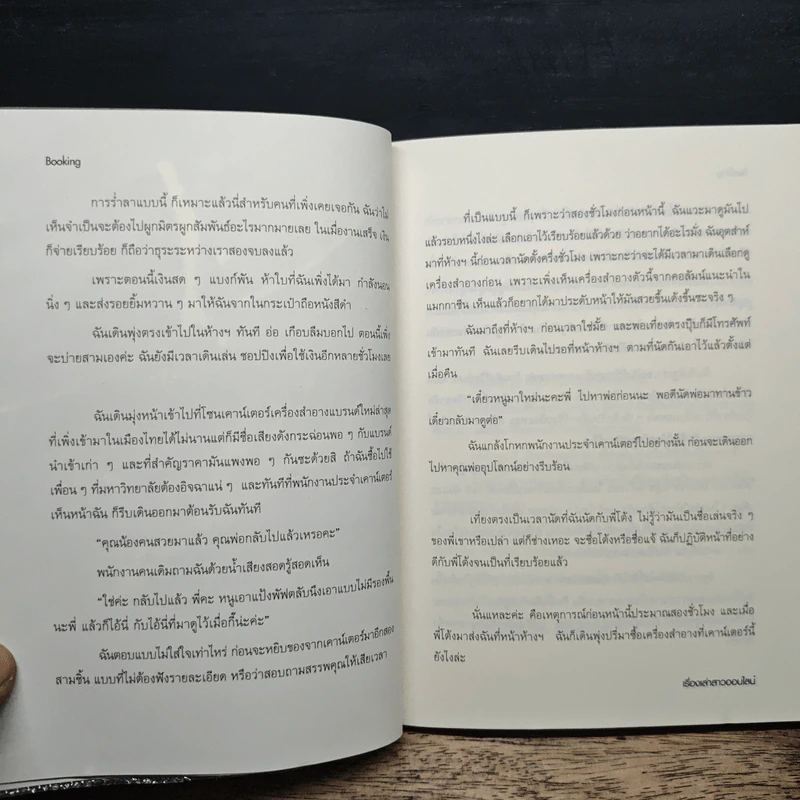 Booking
การร่ำลาแบบนี้ ก็เหมาะแล้วนี่สำหรับคนที่เพิ่งเคยเจอกัน ฉันว่าไม่
เห็นจำเป็นจะต้องไปผูกมิตรผูกสัมพันธ์อะไรมากมายเลย ในเมื่องานเสร็จ เงิน
ก็จ่ายเรียบร้อย ก็ถือว่าธุระระหว่างเราสองจบลงแล้ว
เพราะตอนนี้เงินสด ๆ แบงก์พัน ห้าใบที่ฉันเพิ่งได้มา กำลังนอน
นิ่ง ๆ และส่งรอยยิ้มหวาน ๆ มาให้ฉันจากในกระเป๋าถือหนังสีดำ
ฉันเดินพุ่งตรงเข้าไปในห้างฯ ทันที อ่อ เกือบลืมบอกไป ตอนนี้เพิ่ง
จะบ่ายสามเองค่ะ ฉันยังมีเวลาเดินเล่น ชอปปิงเพื่อใช้เงินอีกหลายชั่วโมงเลย
ฉันเดินมุ่งหน้าเข้าไปที่โซนเคาน์เตอร์เครื่องสำอางแบรนด์ใหม่ล่าสุด
ที่เพิ่งเข้ามาในเมืองไทยได้ไม่นานแต่ก็มีชื่อเสียงดังกระฉ่อนพอ ๆ กับแบรนด์
นำเข้าเก่า ๆ และที่สำคัญราคามันแพงพอ ๆ กันซะด้วยสิ ถ้าฉันซื้อไปใช้
เพื่อน ๆ ที่มหาวิทยาลัยต้องอิจฉาแน่ ๆ และทันทีที่พนักงานประจำเคาน์เตอร์
เห็นหน้าฉัน ก็รีบเดินออกมาต้อนรับฉันทันที
“คุณน้องคนสวยมาแล้ว คุณพ่อกลับไปแล้วเหรอคะ”
พนักงานคนเดิมถามฉันด้วยน้ำเสียงสอดรู้สอดเห็น
“ใช่ค่ะ กลับไปแล้ว พี่คะ หนูเอาแป้งพัฟตลับนึงเอาแบบไม่มีรองพื้น
นะพี่ แล้วก็ไอ้นี่ กับไอ้นี่ที่มาดูไว้เมื่อกี้น่ะค่ะ”
ฉันตอบแบบไม่ใส่ใจเท่าไหร่ ก่อนจะหยิบของจากเคาน์เตอร์มาอีกสอง
สามชิ้น แบบที่ไม่ต้องฟังรายละเอียด หรือว่าสอบถามสรรพคุณให้เสียเวลา
ที่เป็นแบบนี้ ก็เพราะว่าสองชั่วโมงก่อนหน้านี้ ฉันแวะมาดูมันไป
แล้วรอบหนึ่งไงล่ะ เลือกเอาไว้เรียบร้อยแล้วด้วย ว่าอยากได้อะไรมั่ง ฉันอุตส่าห์
มาที่ห้างฯ นี้ก่อนเวลานัดตั้งครึ่งชั่วโมง เพราะกะว่าจะได้มีเวลามาเดินเลือกดู
เครื่องสำอางก่อน เพราะเพิ่งเห็นเครื่องสำอางตัวนี้จากคอลัมน์แนะนำใน
แมกกาซีน เห็นแล้วก็อยากได้มาประดับหน้าให้มันสวยขึ้นเด้งขึ้นซะจริง ๆ
ฉันมาถึงที่ห้างฯ ก่อนเวลาใช่มั้ย และพอเที่ยงตรงปุ๊บก็มีโทรศัพท์
เข้ามาทันที ฉันเลยรีบเดินไปรอที่หน้าห้างฯ ตามที่นัดกันเอาไว้แล้วตั้งแต่
เมื่อคืน
“เดี๋ยวหนูมาใหม่นะคะพี่ ไปหาพ่อก่อนนะ พอดีนัดพ่อมาทานข้าว
เดี๋ยวกลับมาดูต่อ”
ฉันแกล้งโกหกพนักงานประจำเคาน์เตอร์ไปอย่างนั้น ก่อนจะเดินออก
ไปหาคุณพ่ออุปโลกน์อย่างรีบร้อน
เที่ยงตรงเป็นเวลานัดที่ฉันนัดกับพี่โต้ง ไม่รู้ว่ามันเป็นชื่อเล่นจริง ๆ
ของพี่เขาหรือเปล่า แต่ก็ช่างเหอะ จะชื่อโต้งหรือชื่อแจ้ ฉันก็ปฏิบัติหน้าที่อย่าง
ดีกับพี่โต้งจนเป็นที่เรียบร้อยแล้ว
นั่นแหละค่ะ คือเหตุการณ์ก่อนหน้านี้ประมาณสองชั่วโมง และเมื่อ
พี่โต้งมาส่งฉันที่หน้าห้างฯ ฉันก็เดินพุ่งปรี่มาซื้อเครื่องสำอางที่เคาน์เตอร์นี้
ยังไงล่ะ
เรื่องเล่าสาวออนไลน์